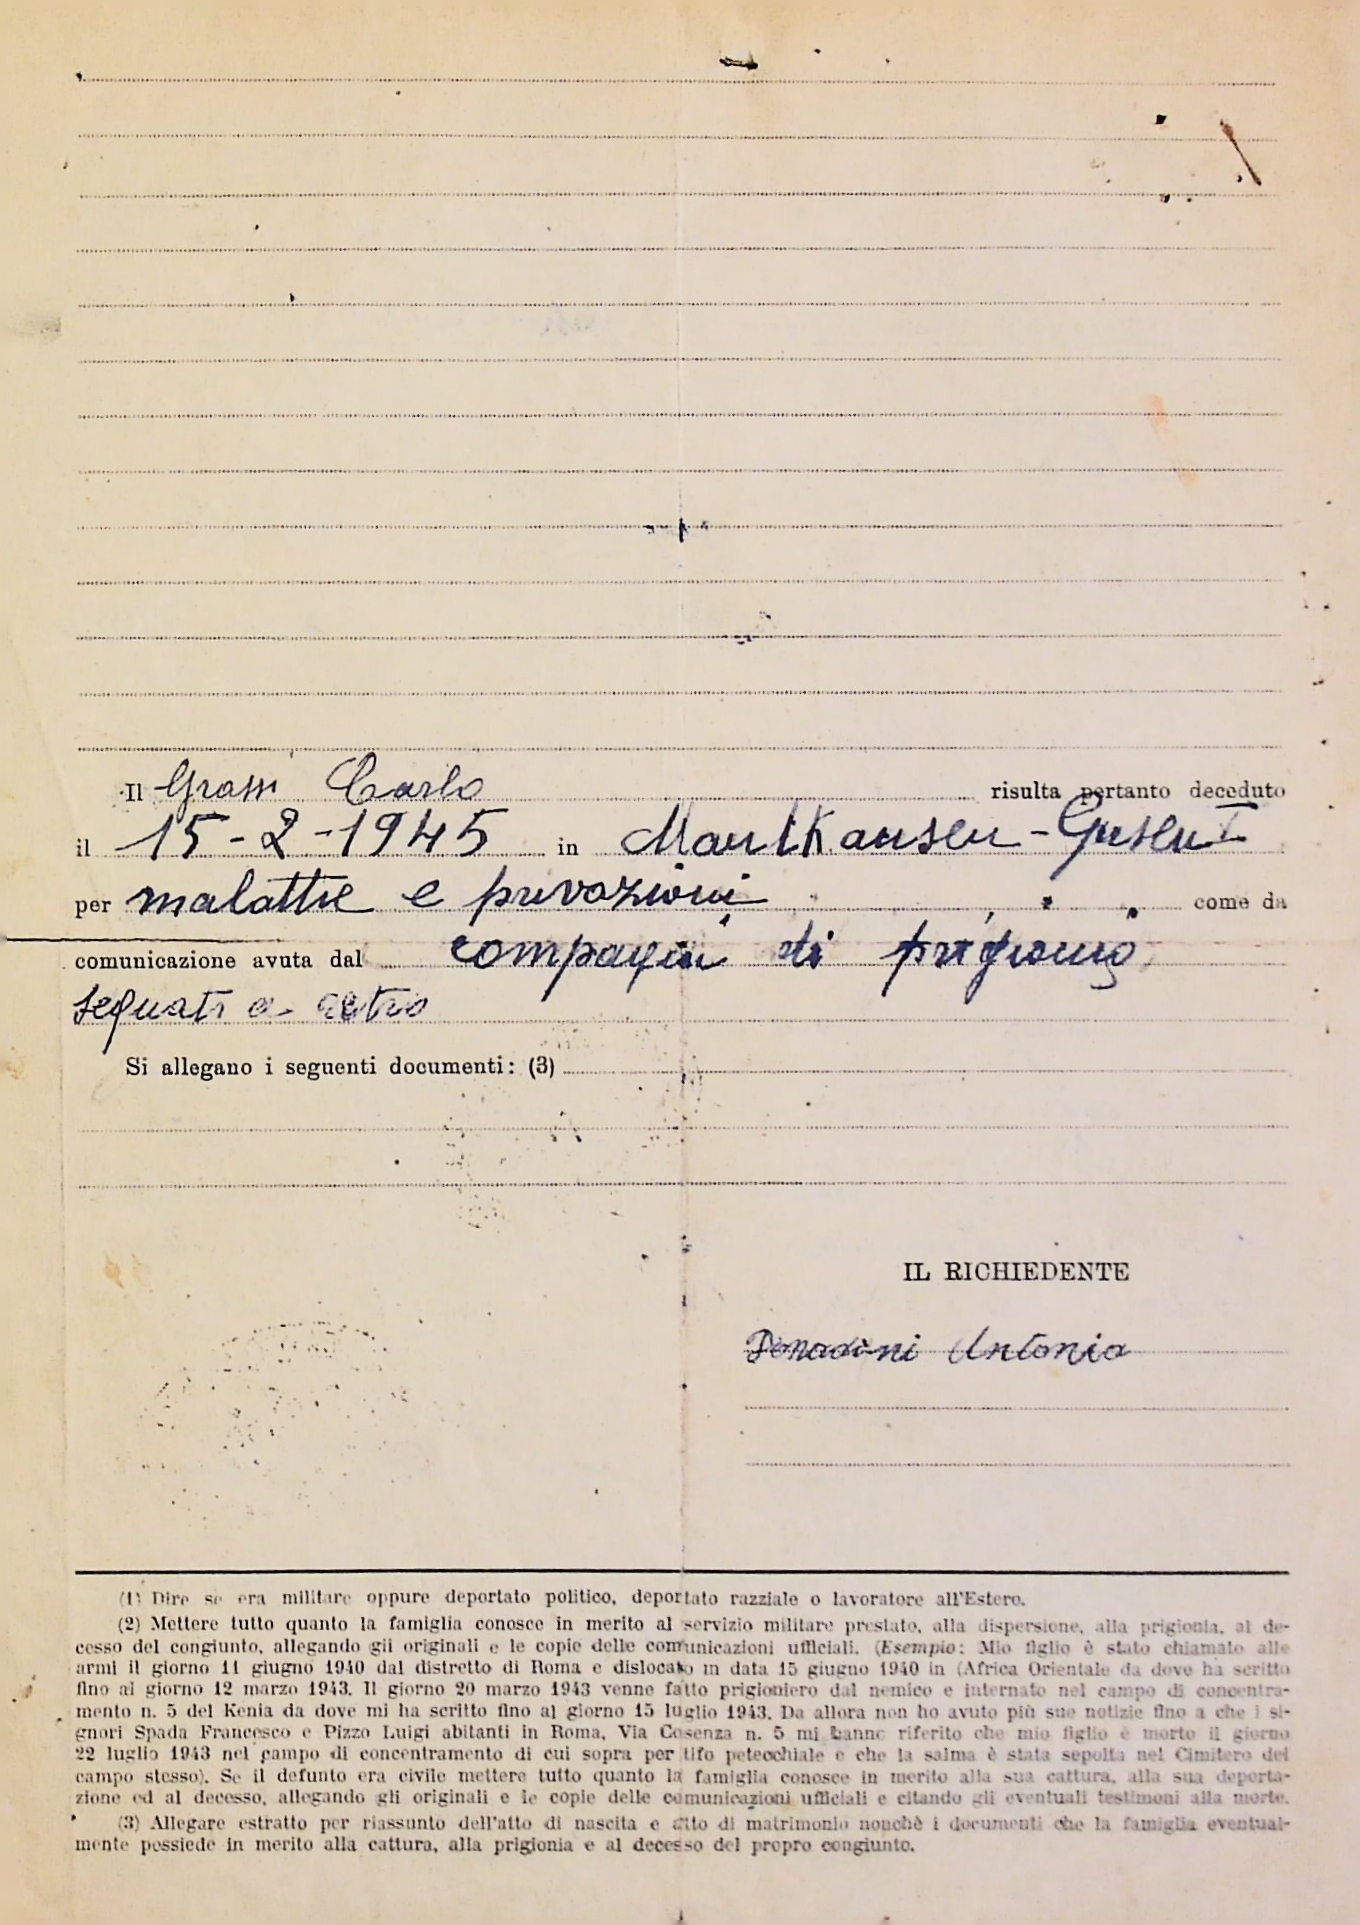 Il Grassi Carlo risulta pertanto deceduto
il 15-2-1945 in Mautkausen-Gusen I
per malattie e privazioni come da
comunicazione avuta dal compagni di prigionia
segnati a retro
Si allegano i seguenti documenti: (3)
IL RICHIEDENTE
Donadini Antonia
(1) Dire se era militare oppure deportato politico, deportato razziale o lavoratore all'Estero.
(2) Mettere tutto quanto la famiglia conosce in merito al servizio militare prestato, alla dispersione, alla prigionia, al de-
cesso del congiunto, allegando gli originali e le copie delle comunicazioni ufficiali. (Esempio: Mio figlio è stato chiamato alle
armi il giorno 11 giugno 1940 dal distretto di Roma e dislocato in data 15 giugno 1940 in (Africa Orientale da dove ha scritto
fino al giorno 12 marzo 1943. Il giorno 20 marzo 1943 venne fatto prigioniero dal nemico e internato nel campo di concentra-
mento n. 5 del Kenia da dove mi ha scritto fino al giorno 15 luglio 1943. Da allora non ho avuto più sue notizie fino a che i si-
gnori Spada Francesco e Pizzo Luigi abitanti in Roma, Via Cosenza n. 5 mi hanno riferito che mio figlio è morto il giorno
22 luglio 1943 nel campo di concentramento di cui sopra per tifo petecchiale e che la salma è stata sepolta nel Cimitero del
campo stesso). Se il defunto era civile mettere tutto quanto la famiglia conosce in merito alla sua cattura, alla sua deporta-
zione ed al decesso, allegando gli originali e le copie delle comunicazioni ufficiali e citando gli eventuali testimoni alla morte.
(3) Allegare estratto per riassunto dell'atto di nascita e atto di matrimonio nonchè i documenti che la famiglia eventual-
mente possiede in merito alla cattura, alla prigionia e al decesso del propro congiunto.